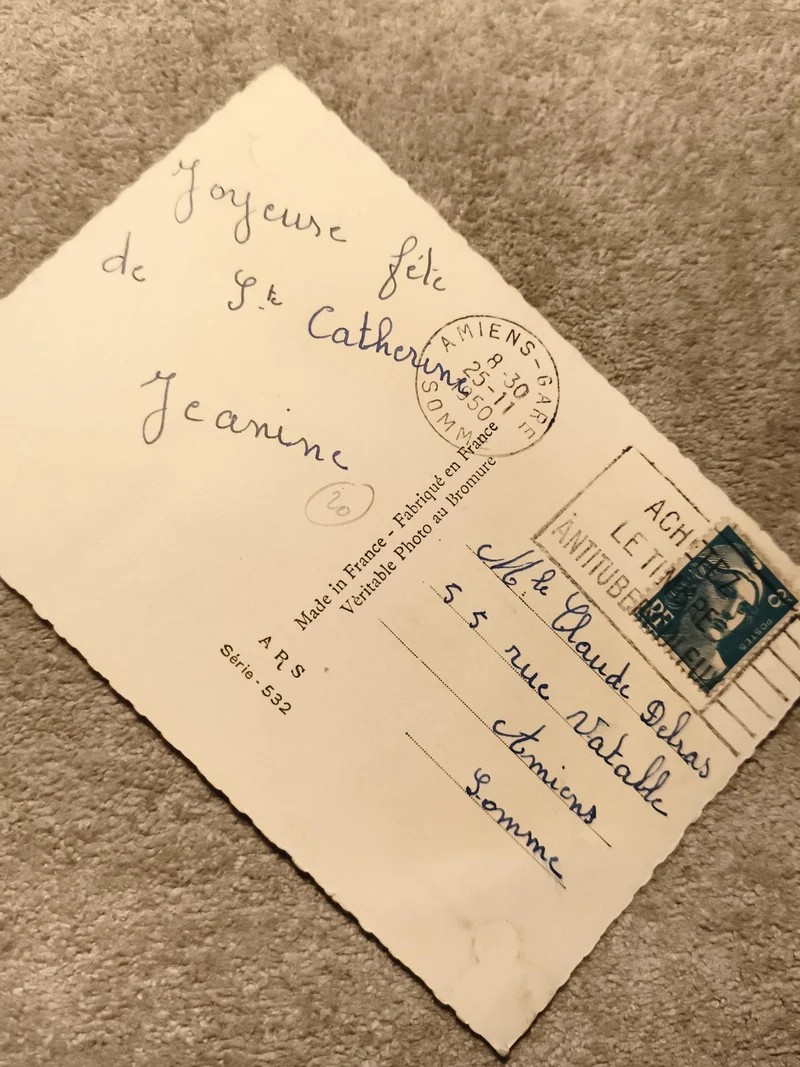 Joyeuse fête
de Ste Catherine
Jeanine
20
AMIENS-GARE
8-30
25-11
1950
SOMME
Made in France - Fabriqué en France
Véritable Photo au Bromure
ARS
Série - 532
ACHETEZ
LE TIMBRE
ANTITUBERCULEUX
RF
20
POSTES
Mlle Claude Delsas
55 rue Vatable
Amiens
Somme